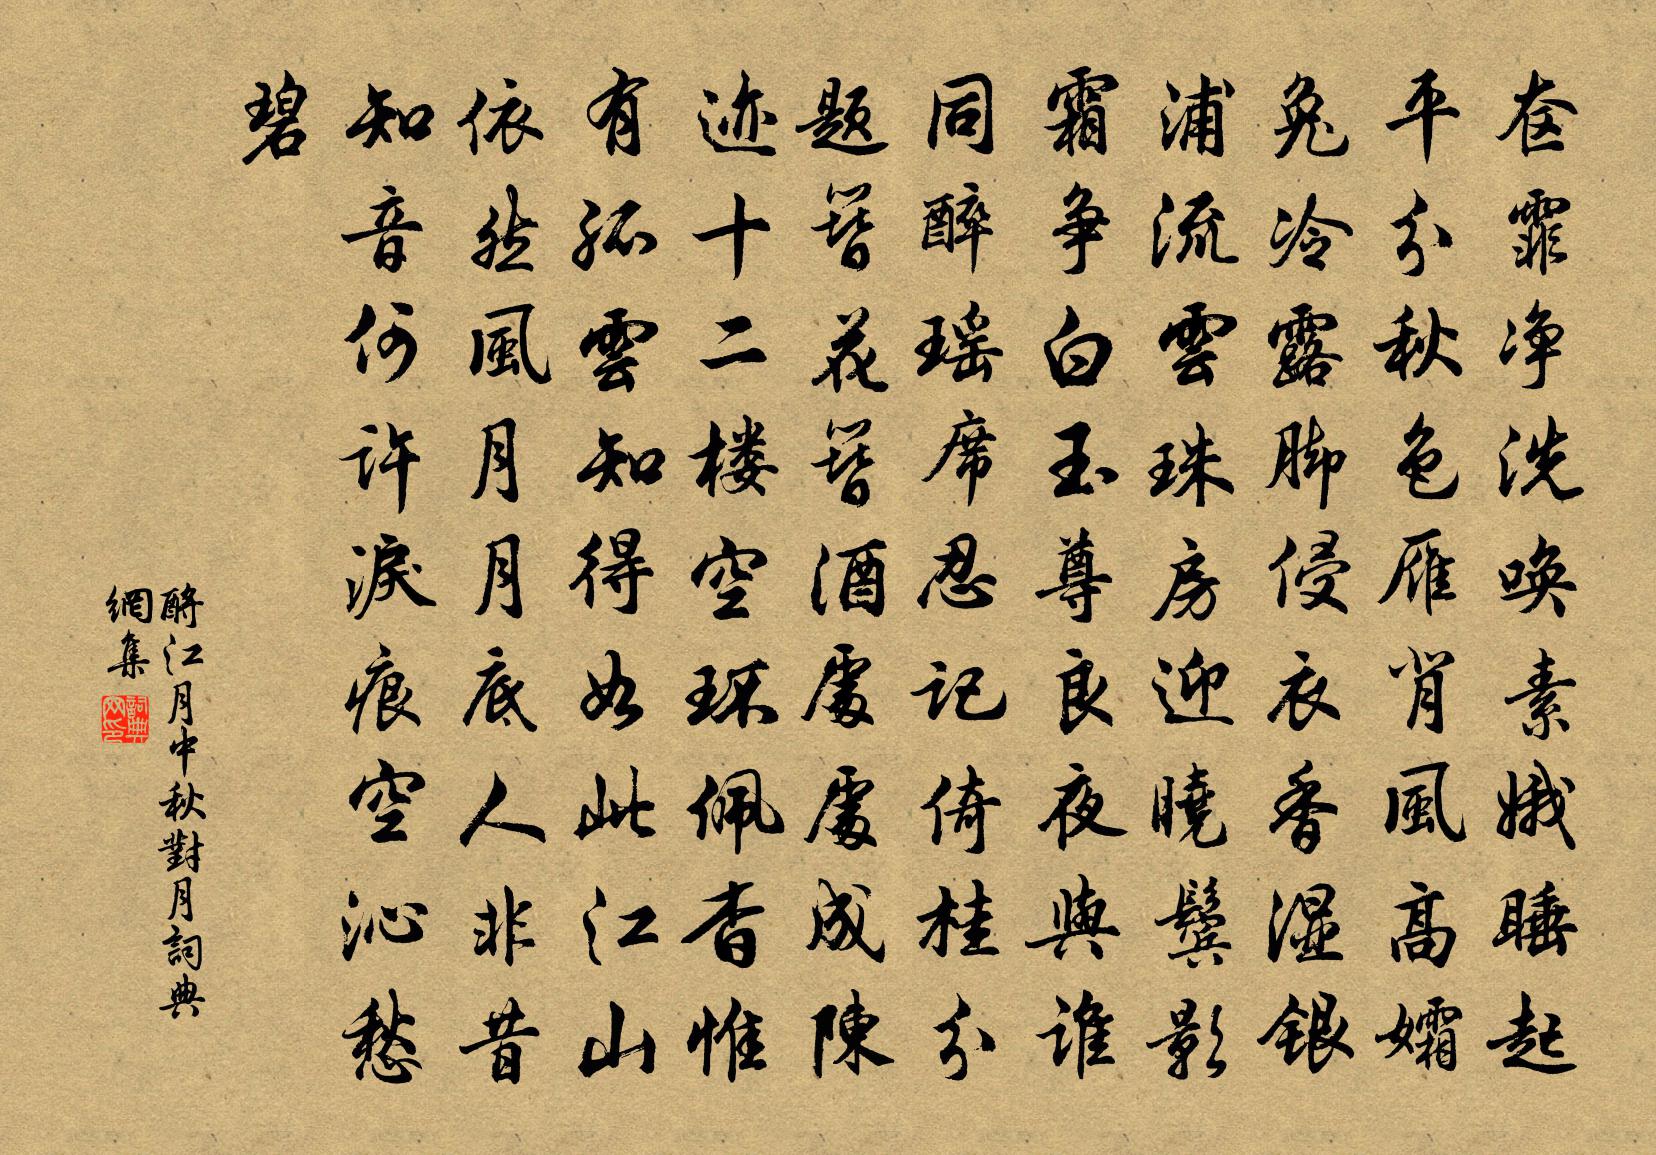 奁霏净洗唤素娥睡起
平分秋色雁背風高孀
兔冷露脚侵衣香湿銀
浦流雲珠房迎曉鬓影
霜争白玉尊良夜與谁
同醉瑶席忍记倚桂分
题簪花簪酒處處成陳
迹十二楼空环佩杳惟
有孤雲知得如此江山
依然風月月底人非昔
知音何许淚痕空沁愁
碧
酹江月中秋對月詞典
網集
詞典
网印